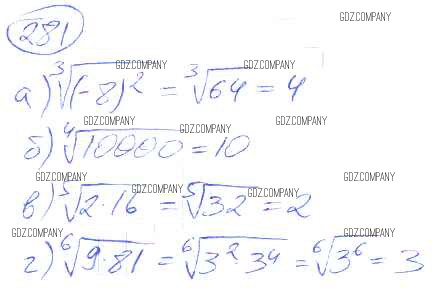 GDZ.COMPANY
281
GDZ.COMPANY GDZ.COMPANY
а) ∛(-8)² = ∛64 = 4
GDZ.COMPANY GDZ.COMPANY GDZ.COMPANY
б) ∜10000 = 10
GDZ.COMPANY GDZ.COMPANY GDZ.COMPANY GDZ.COMPANY
в) ⁵√2·16 = ⁵√32 = 2
GDZ.COMPANY GDZ.COMPANY GDZ.COMPANY
г) ⁶√9·81 = ⁶√3²·3⁴ = ⁶√3⁶ = 3